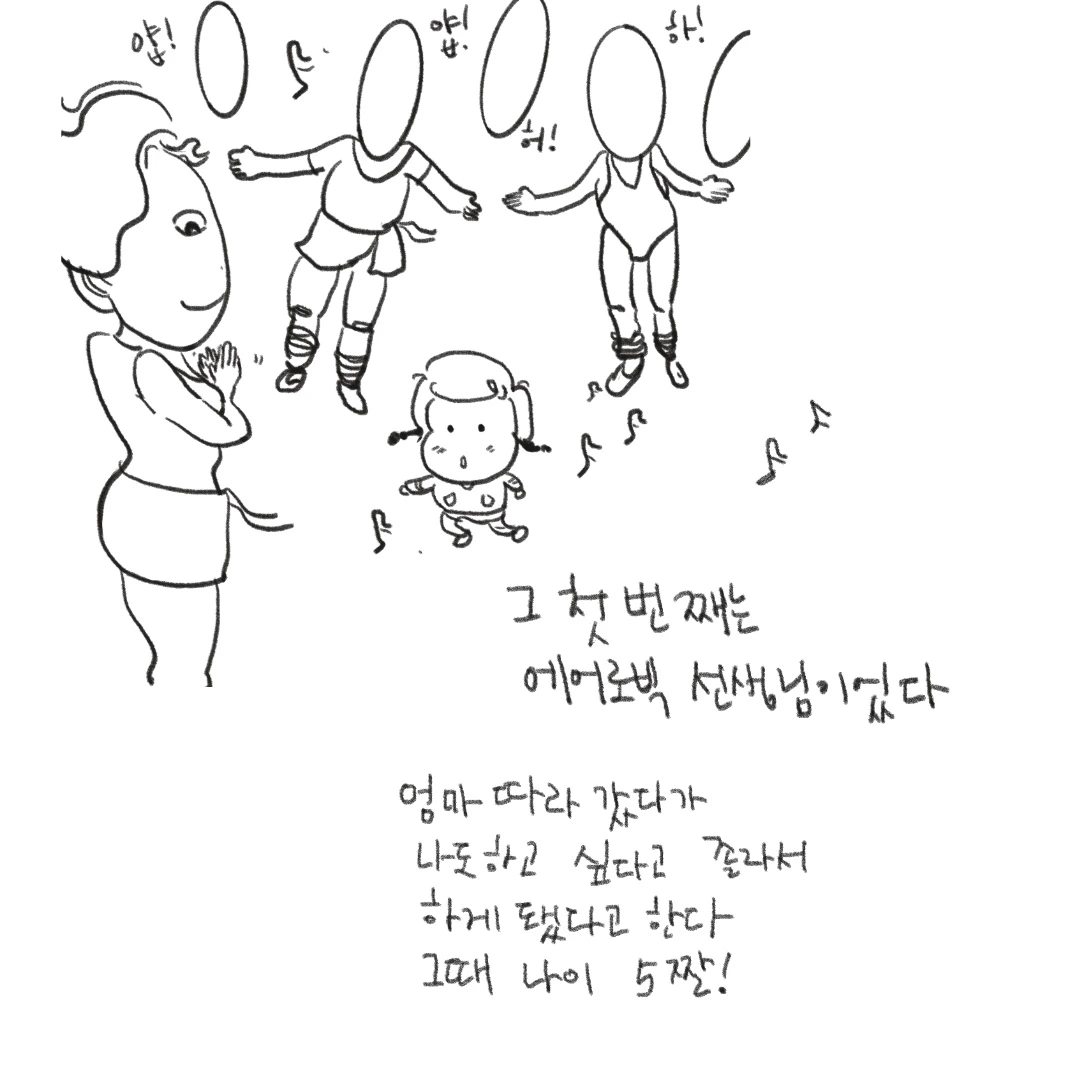 얍!
얍!
하!
허!
그 첫 번째는
에어로빅 선생님이었다
엄마 따라 갔다가
나도하고 싶다고 졸라서
하게 됐다고 한다
그때 나이 5짤!